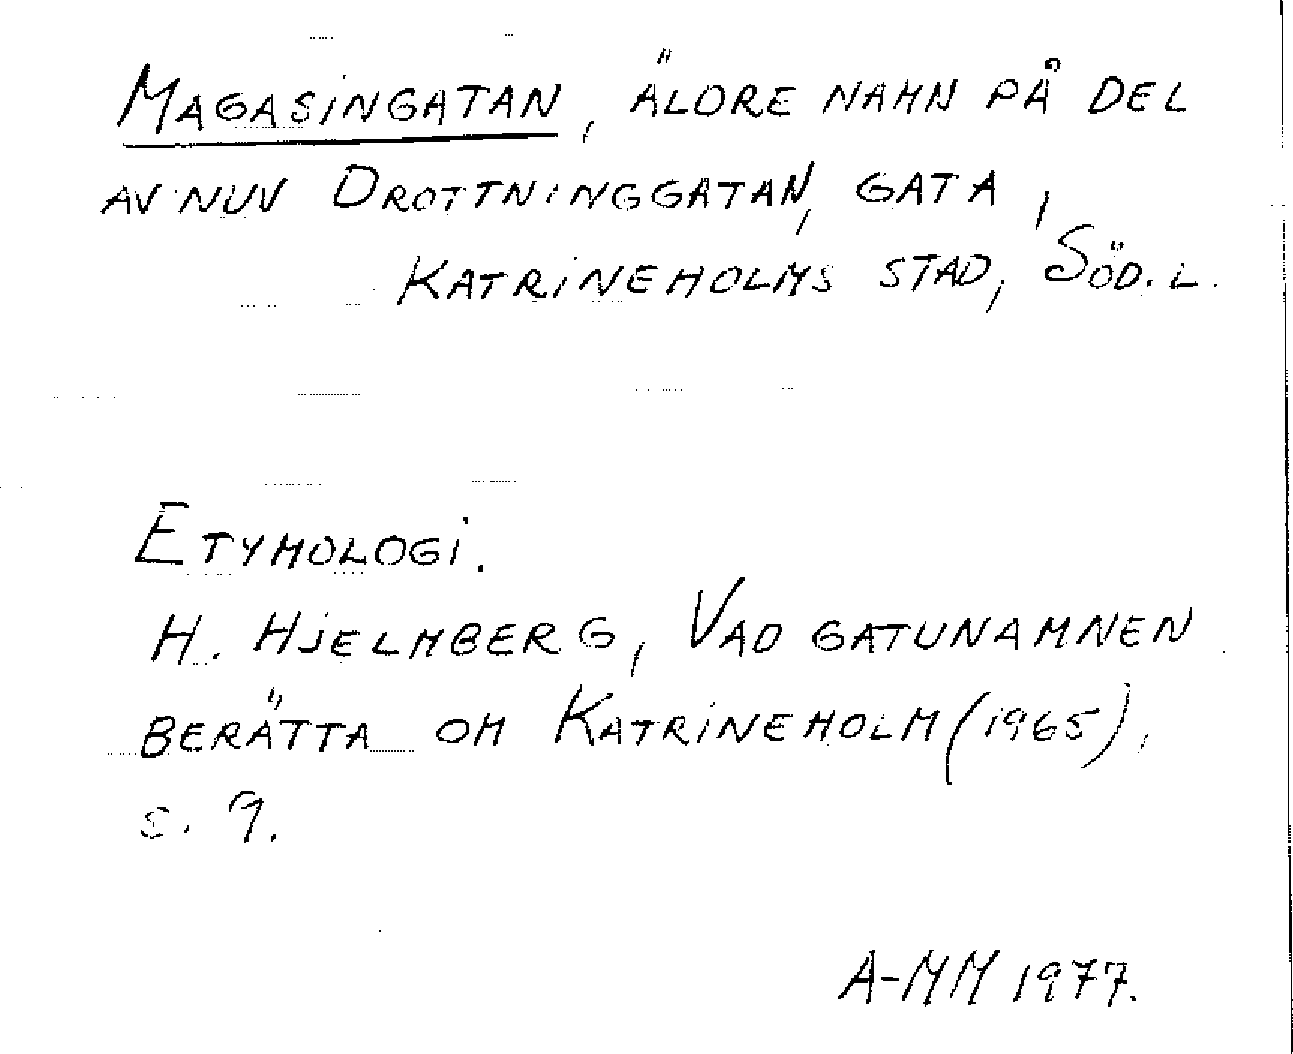 Magasingatan, äldre namn på del
av nuv Drottninggatan, gata,
Katrineholms stad, Söd.l.
Etymologi.
H. Hjelmberg, Vad gatunamnen
berätta om Katrineholm (1965),
s. 9.
A-MM 1977.